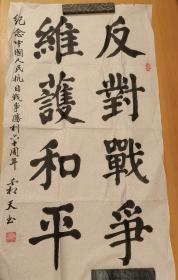 反對戰爭
維護和平
紀念中國人民抗日戰爭勝利六十周年
天书